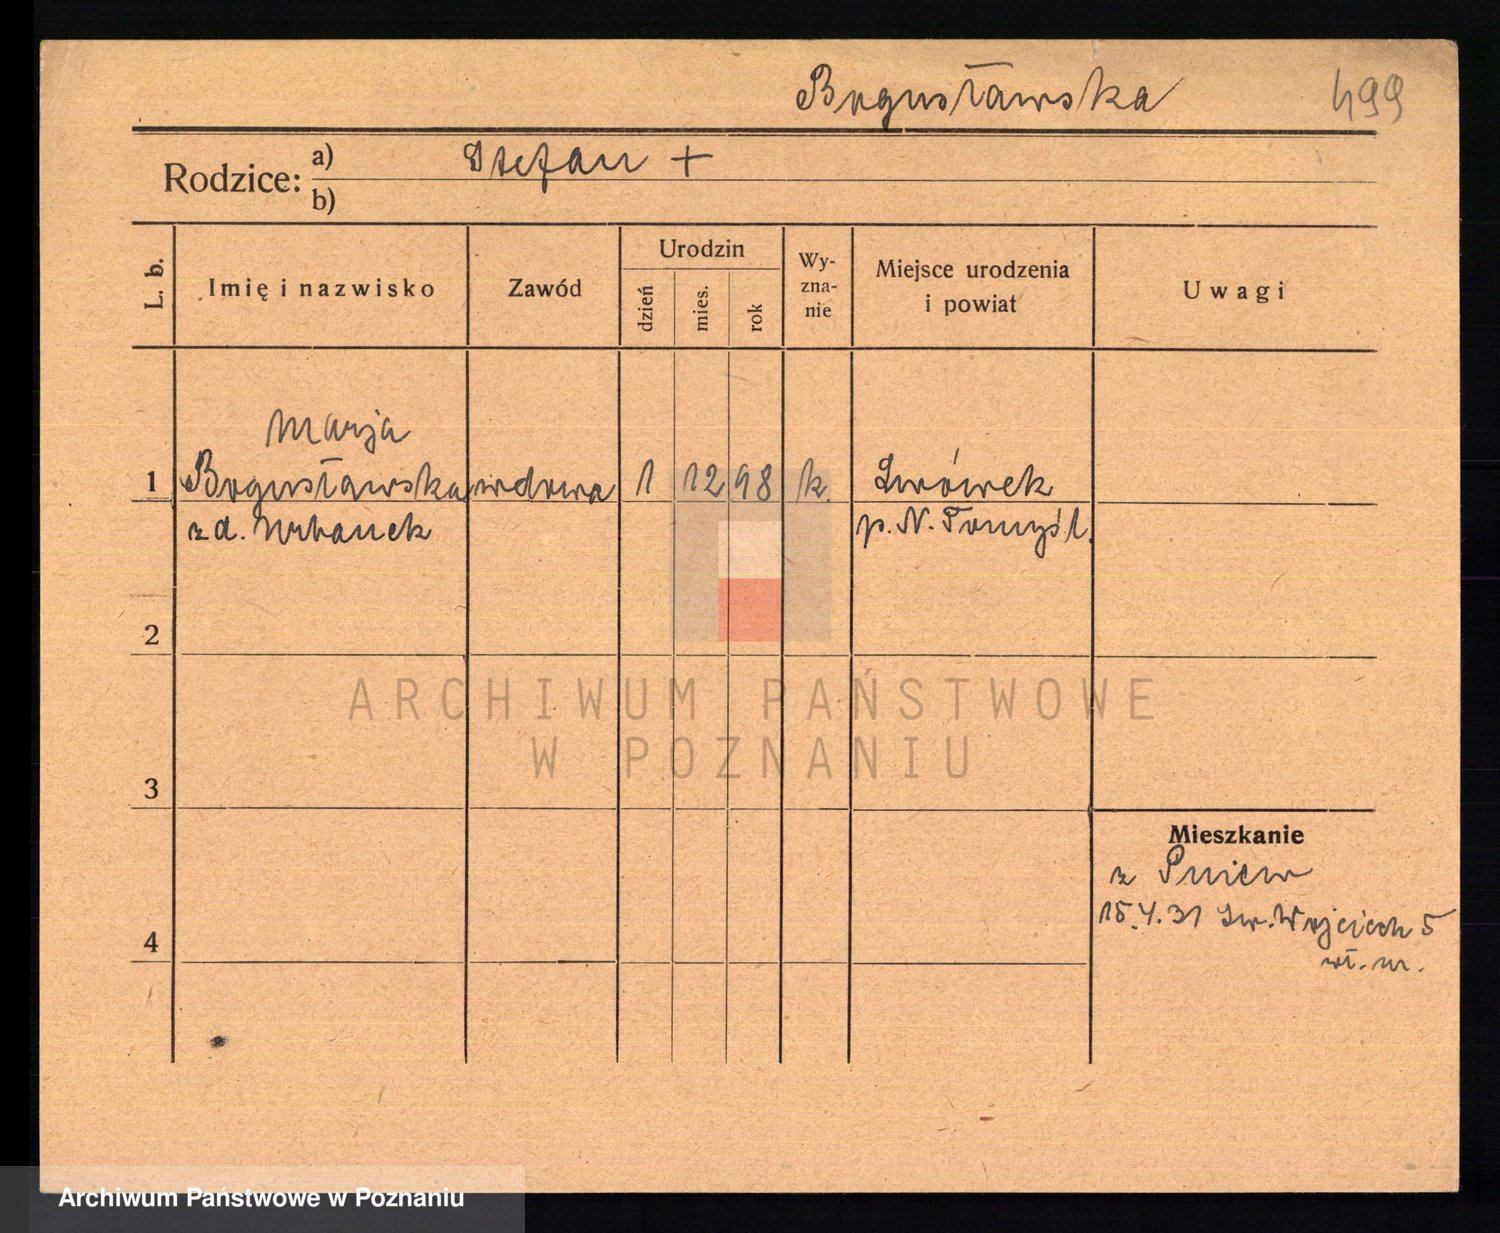 Bogusławska 499
Rodzice: a) Stefan +
b)
L. b.
Imię i nazwisko
Zawód
Urodzin
dzień
mies.
rok
Wy-
zna-
nie
Miejsce urodzenia
i powiat
Uwagi
Marja
1 Bogusławska wdowa 1 12 98 k. Lwówek
z d. Urbanek p. N. Tomyśl.
2
ARCHIWUM PAŃSTWOWE
W POZNANIU
3
Mieszkanie
z Pniew
15.4.31 Św. Wojciech 5
4
wł. m.
Archiwum Państwowe w Poznaniu